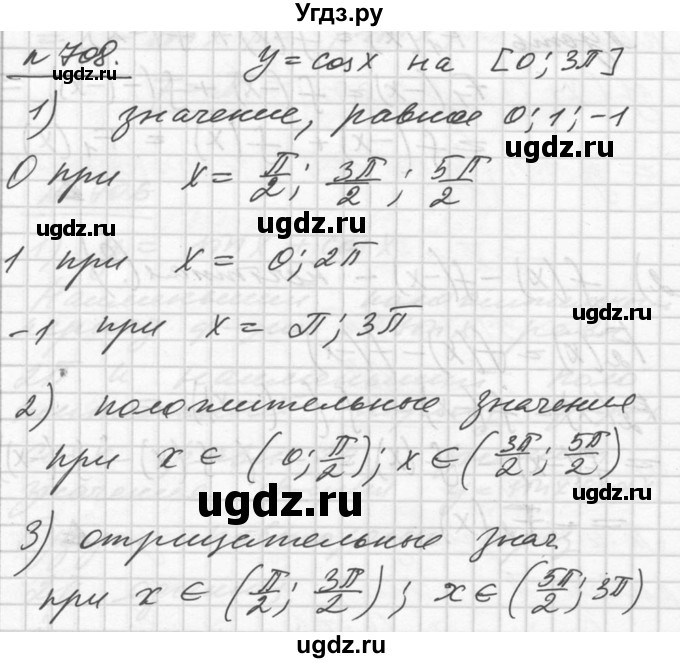 Угдз.ру
n 708.
y = cosx на [0; 3π]
ugdz.ru
1) значение, равное 0; 1; -1
ugdz.ru
0 при x = π/2; 3π/2; 5π/2
ugdz.ru
ugdz.ru
1 при x = 0; 2π
ugdz.ru
-1 при x = π; 3π
2) положительные значение
при x ∈ (0; π/2); x ∈ (3π/2; 5π/2)
ugdz.ru
ugdz.ru
3) отрицательные знач.
ugdz.ru
при x ∈ (π/2; 3π/2); x ∈ (5π/2; 3π)
ugdz.ru